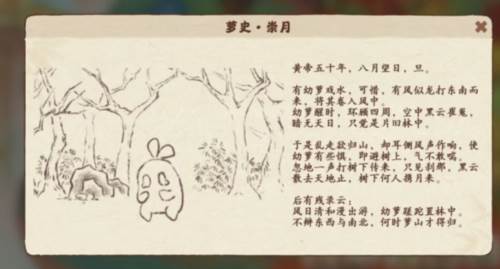 萝史·崇月
黄帝五十年，八月望日，旦。
有幼萝戏水，可惜，有风似龙打东南而
来，将其卷入风中。
幼萝醒时，环顾四周，空中黑云崔嵬，
暗无天日，只觉是片囚林中。
于是乱走欲归山，却耳侧风声作响，使
幼萝有些惧，即避树上，气不敢喘。
忽地一声打树下传来，只见刹那，黑云
散去天地止，树下何人携月来。
后有残录云：
风日清和漫出游，幼萝蹉跎置林中。
不辨东西与南北，何时萝山才得归。